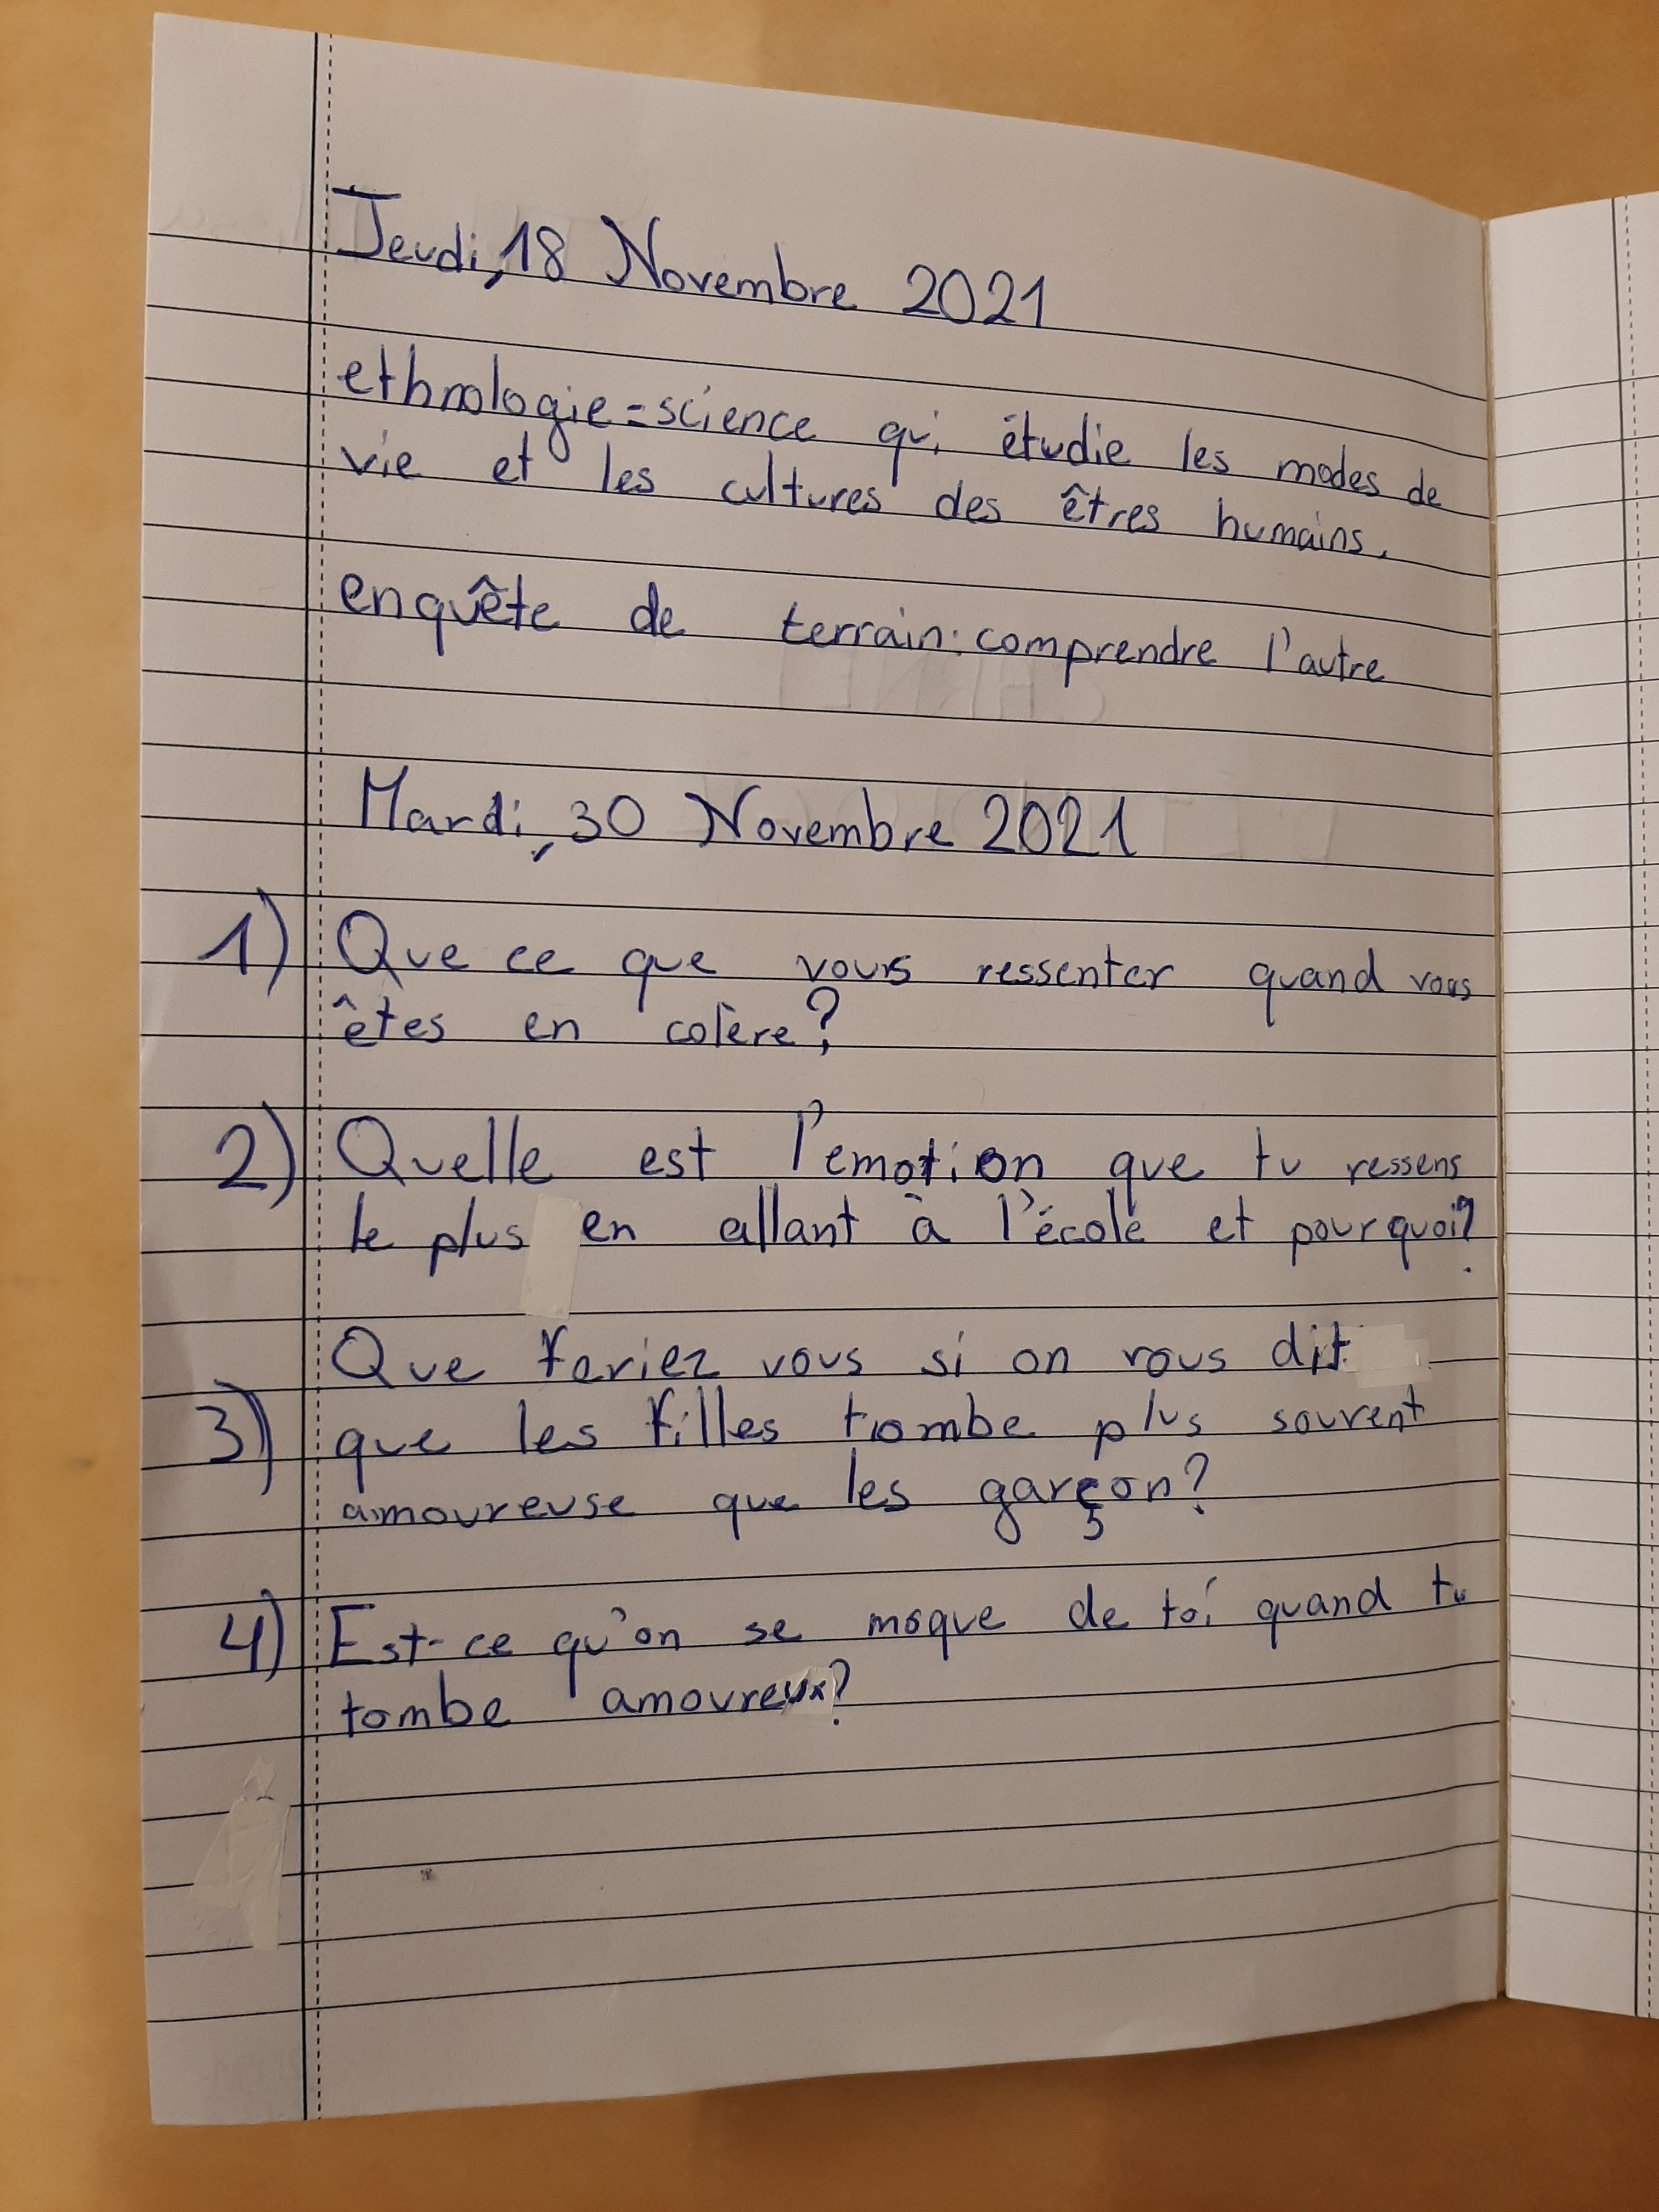 Jeudi, 18 Novembre 2021
ethnologie = science qui étudie les modes de
vie et les cultures des êtres humains.
enquête de terrain: comprendre l'autre
Mardi, 30 Novembre 2021
1) Que ce que vous ressenter quand vous
êtes en colère?
2) Quelle est l'emotion que tu ressens
le plus en allant à l'école et pourquoi?
Que feriez vous si on vous dit
3) que les filles tombe plus souvent
amoureuse que les garçon?
4) Est-ce qu'on se moque de toi quand tu
tombe amoureux?